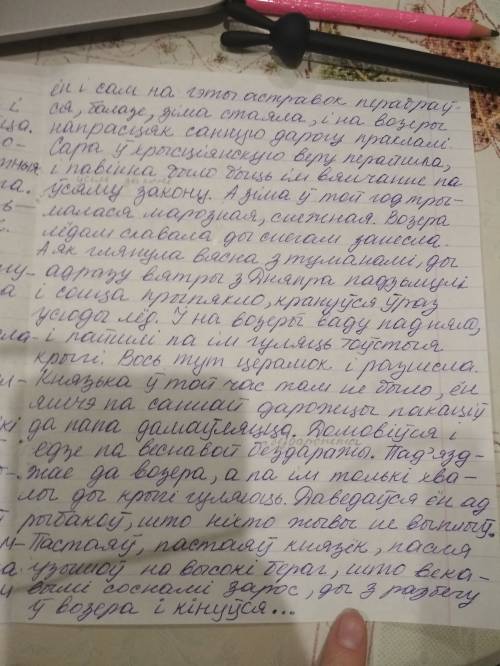 ён і сам на гэты астравок перабраў-
ся, балазе, зіма стаяла, і на возеры
напрасцяк санную дарогу праклалі
Сара ў хрысціянскую веру перайшла,
і павінна было быць ім вянчанне па
ўсяму закону. А зіма ў той год тры-
малася марозная, снежная. Возера
лёдам скавала ды снегам занесла.
А як глянула вясна з туманамі, ды
адразу вятры з Дняпра падзьмулі
і сонца прыпякло, крануўся ўраз
усюды лёд. І на возеры ваду падняло,
і пайшлі па ім гуляць тоўстыя
крыгі. Вось тут церамок і разнесла.
Князька ў той час там не было, ён
яшчэ па саннай дарожцы пакаціў
да папа дамаўляцца. Домовіўся і
бездарожжы
едзе па веснавой бездаражы. Пад'язд-
жае да возера, а па ім толькі хва-
лі ды крыгі гуляюць. Даведаўся ён ад
рыбакоў, што ніхто жывы не выплыў.
Пастаяў, пастаяў князік, пасля
узышоў на высокі бераг, што века-
вымі соснамі зарос, ды з разбегу
ў возера і кінуўся...